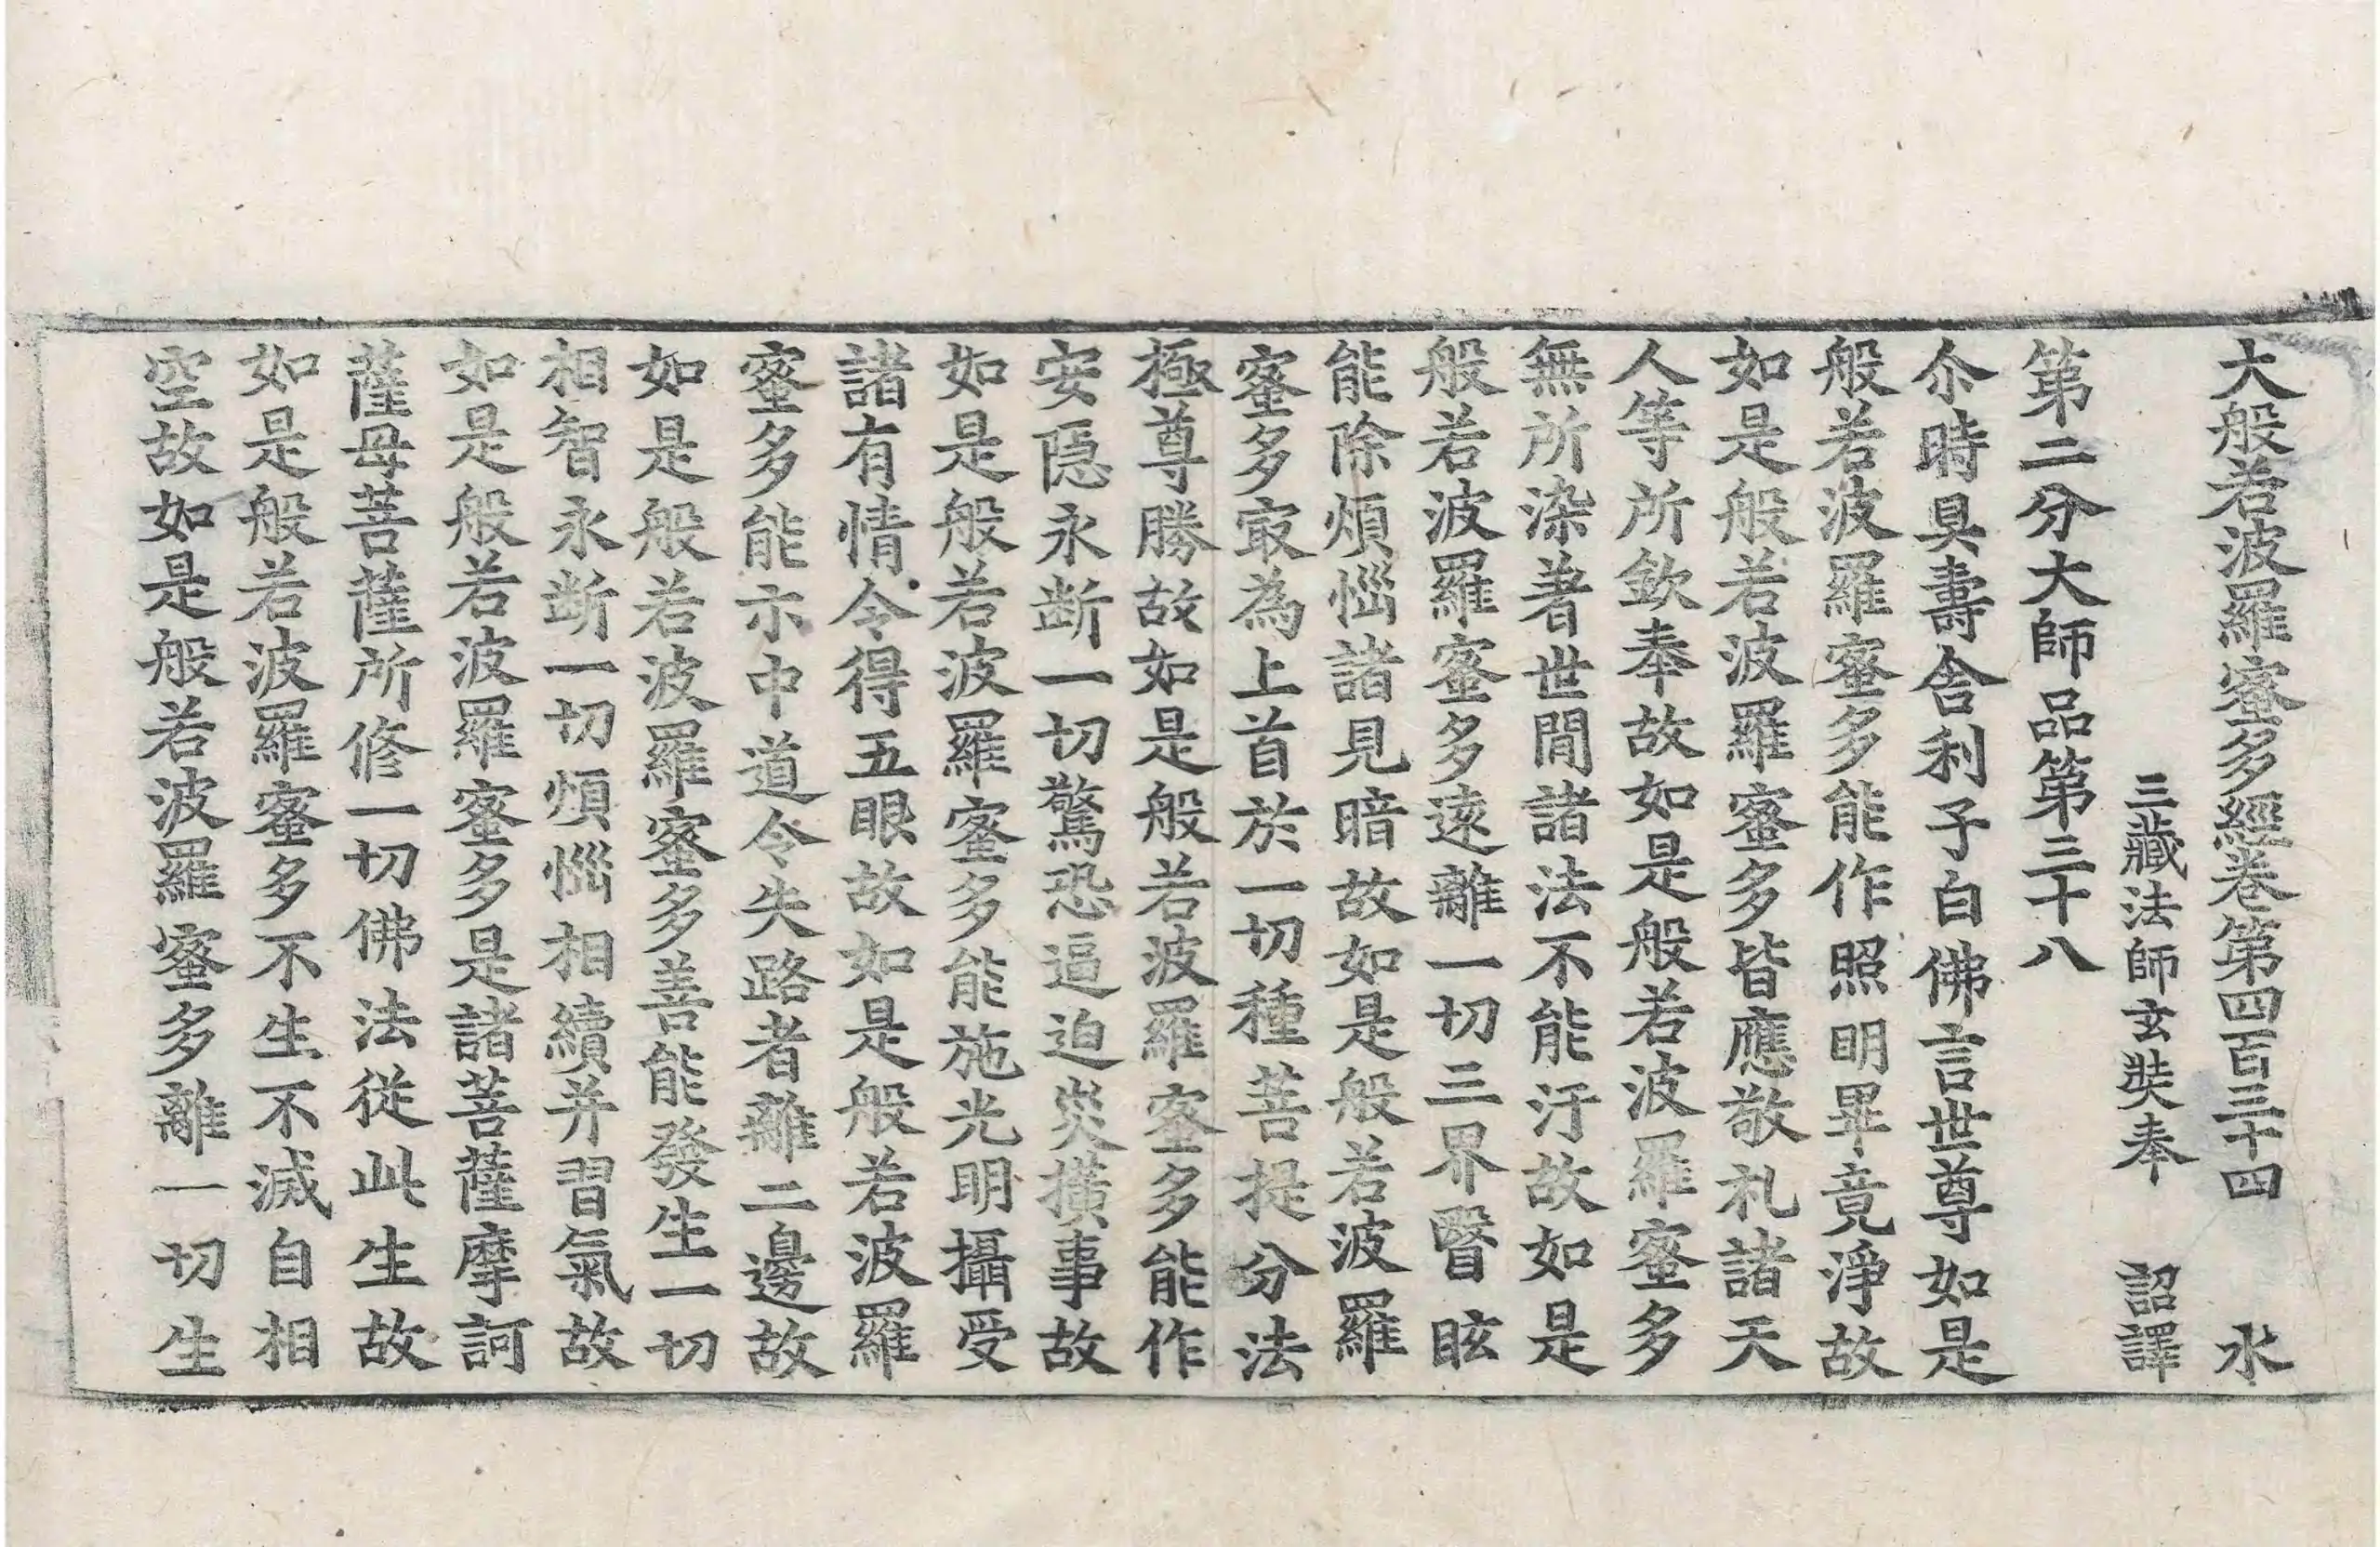 大般若波羅蜜多經卷第四百三十四　水
三藏法師玄奘奉　詔譯
第二分大師品第三十八
尒時具壽舍利子白佛言世尊如是
般若波羅蜜多能作照明畢竟淨故
如是般若波羅蜜多皆應敬礼諸天
人等所欽奉故如是般若波羅蜜多
無所染著世間諸法不能汙故如是
般若波羅蜜多遠離一切三界瞖眩
能除煩惱諸見暗故如是般若波羅
蜜多㝡為上首於一切種菩提分法
極尊勝故如是般若波羅蜜多能作
安隱永断一切驚恐逼迫災橫事故
如是般若波羅蜜多能施光明攝受
諸有情令得五眼故如是般若波羅
蜜多能示中道令失路者離二邊故
如是般若波羅蜜多善能發生一切
相智永断一切煩惱相續并習氣故
如是般若波羅蜜多是諸菩薩摩訶
薩母菩薩所修一切佛法從此生故
如是般若波羅蜜多不生不滅自相
空故如是般若波羅蜜多離一切生